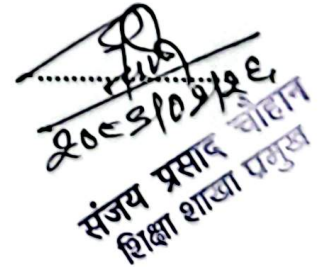 २०८३/०१/२६
संजय प्रसाद चौहान
शिक्षा शाखा प्रमुख